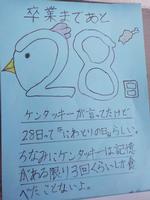 卒業まであと
28日
ケンタッキーが言ってたけど
28日って『にわとりの日』らしい。
ちなみにケンタッキーは記憶
がある限り3回くらいしか食
べたことないよ。